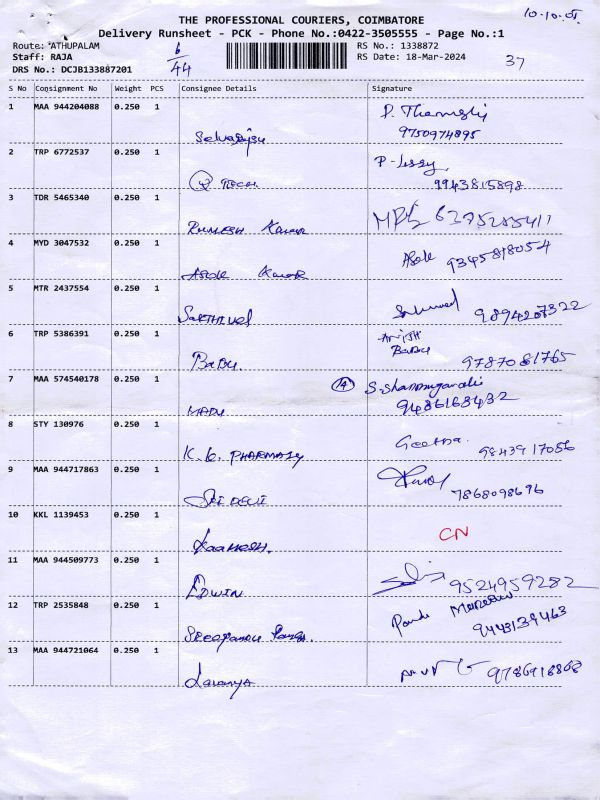 10.10.
THE PROFESSIONAL COURIERS, COIMBATORE
Delivery Runsheet - PCK - Phone No.:0422-3505555 - Page No.:1
Route: ATHUPALAM 6 RS No.: 1338872
Staff: RAJA 44 RS Date: 18-Mar-2024 37
DRS No.: DCJB133887201
S No Consignment No Weight PCS Consignee Details Signature
1 MAA 944204088 0.250 1
9750974895
2 TRP 6772537 0.250 1 TECH
9943815898
3 TDR 5465340 0.250 1 Kumar 6375285411
4 MYD 3047532 0.250 1 Asok Kumar Asok 9345818054
5 MTR 2437554 0.250 1 SAKTHIVEL
6 TRP 5386391 0.250 1 BABU. BABU 9787081765
7 MAA 574540178 0.250 1 MADU 14
9486168432
8 STY 130976 0.250 1 K.K. PHARMACY Geetha. 9843917056
9 MAA 944717863 0.250 1 SRI DEVI 7868098696
10 KKL 1139453 0.250 1 CN
11 MAA 944509773 0.250 1 EDWIN 9524959282
12 TRP 2535848 0.250 1 9443139463
13 MAA 944721064 0.250 1 Lavanya 9786918808